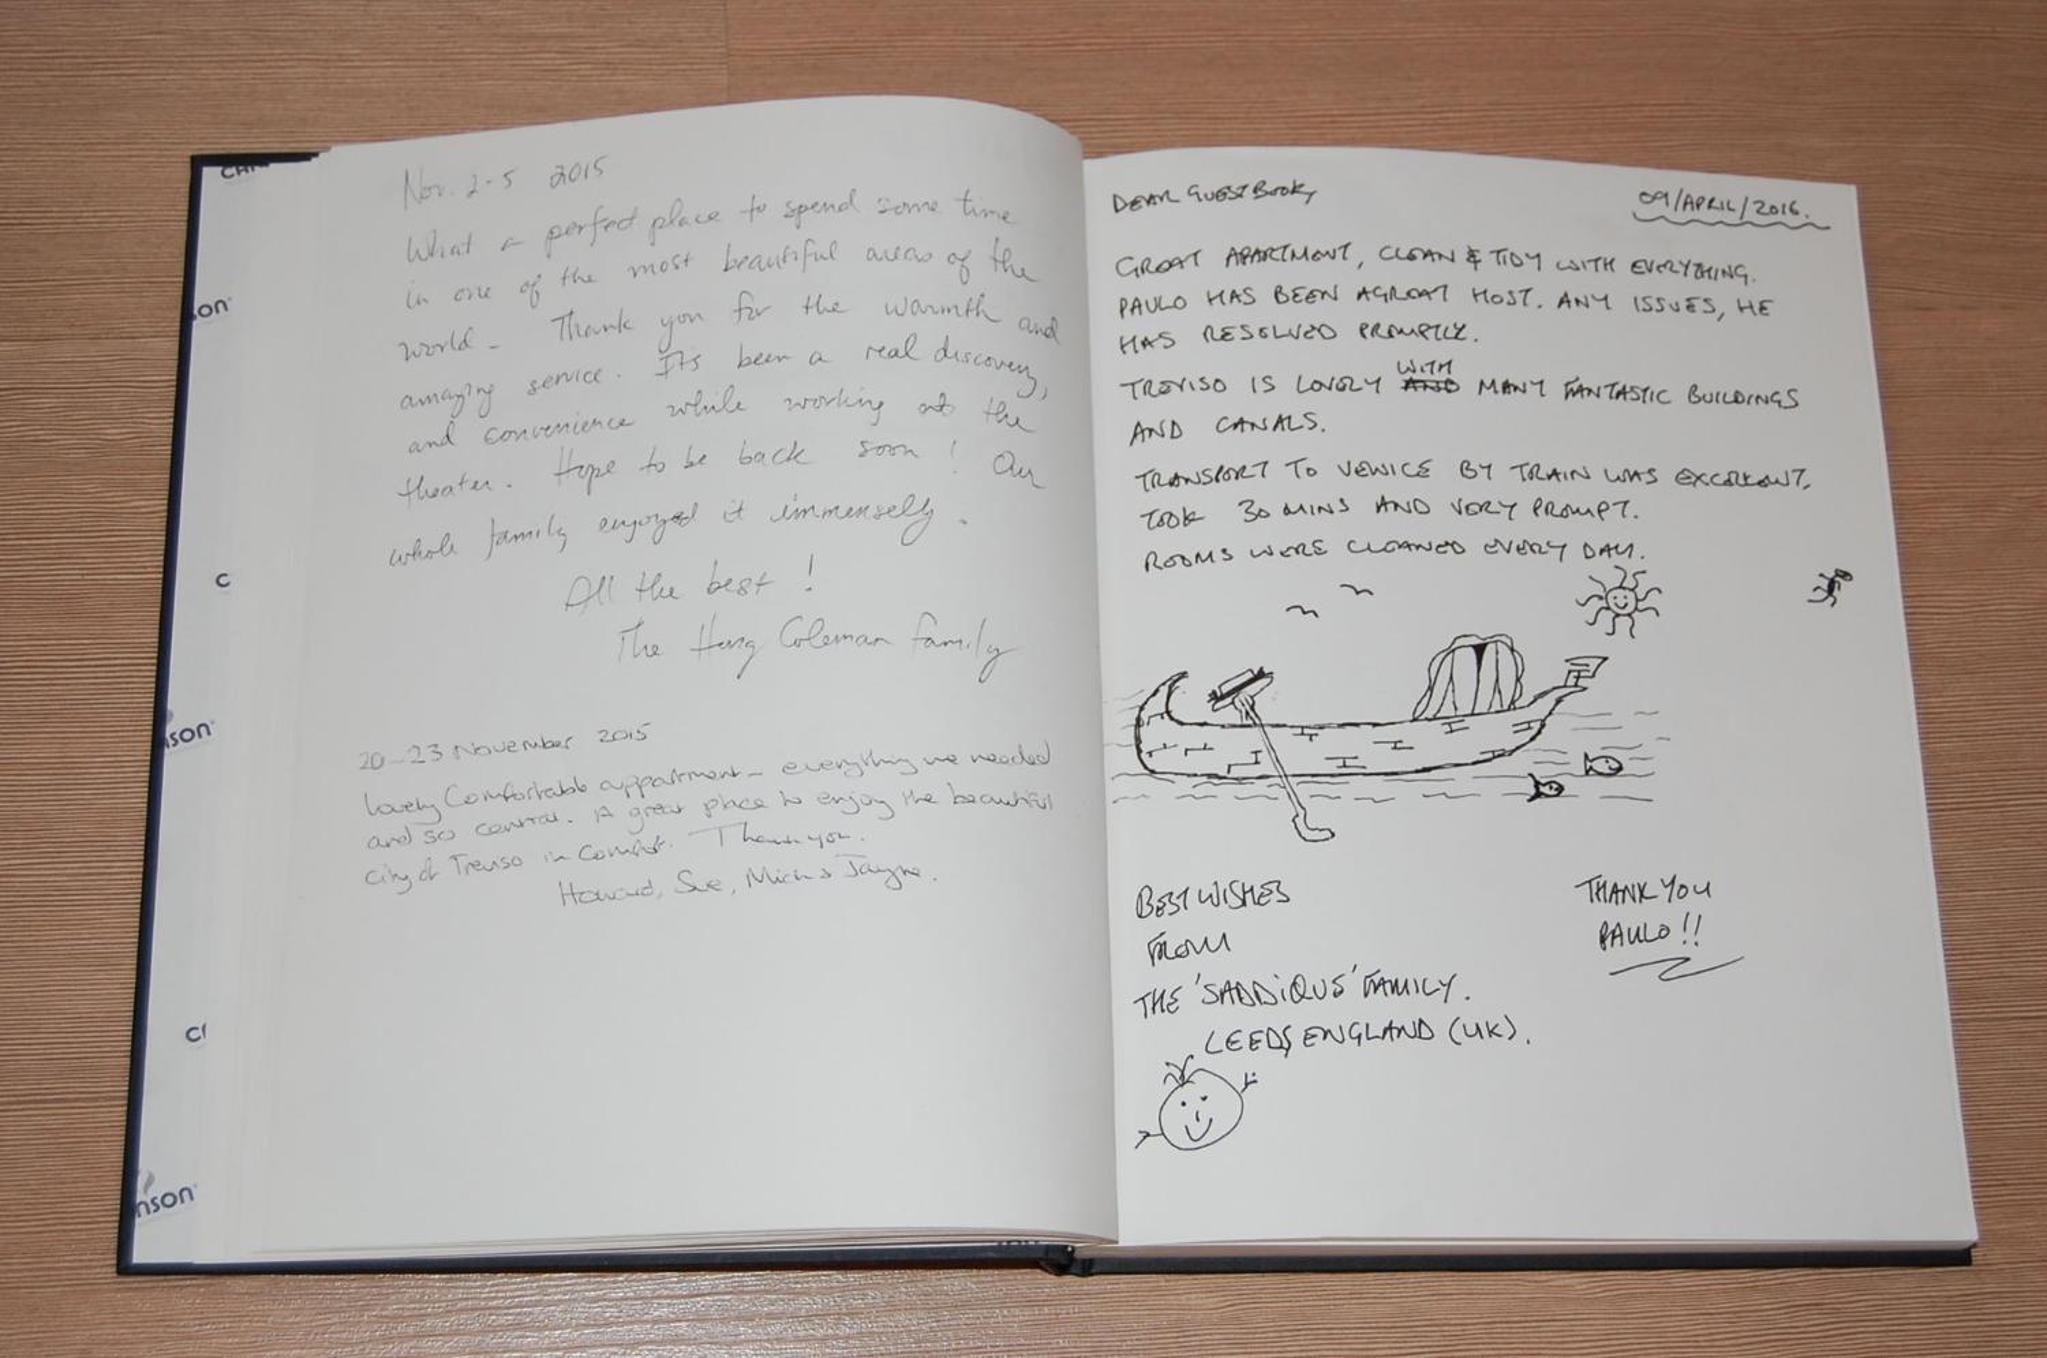 Nov. 2-5 2015
What a perfect place to spend some time
in one of the most beautiful areas of the
world - Thank you for the warmth and
amazing service. It's been a real discovery,
and convenience while working at the
theater. Hope to be back soon! Our
whole family enjoyed it immensely.
All the best!
The Coleman family
20-23 November 2015
Lovely Comfortable appartment - everything we needed
and so central. A great place to enjoy the beautiful
city of Treviso in comfort. Thank you.
Howard, Sue, Mick & Jayne.
DEAR GUESTBOOK,
09/APRIL/2016.
GREAT APARTMENT, CLEAN & TIDY WITH EVERYTHING.
PAULO HAS BEEN A GREAT HOST. ANY ISSUES, HE
HAS RESOLVED PROMPTLY.
TREVISO IS LOVELY WITH MANY FANTASTIC BUILDINGS
AND CANALS.
TRANSPORT TO VENICE BY TRAIN WAS EXCELLENT,
TOOK 30 MINS AND VERY PROMPT.
ROOMS WERE CLEANED EVERY DAY.
BEST WISHES
FROM
THE 'SADDIQUE' FAMILY.
LEEDS, ENGLAND (UK).
THANK YOU
PAULO!!